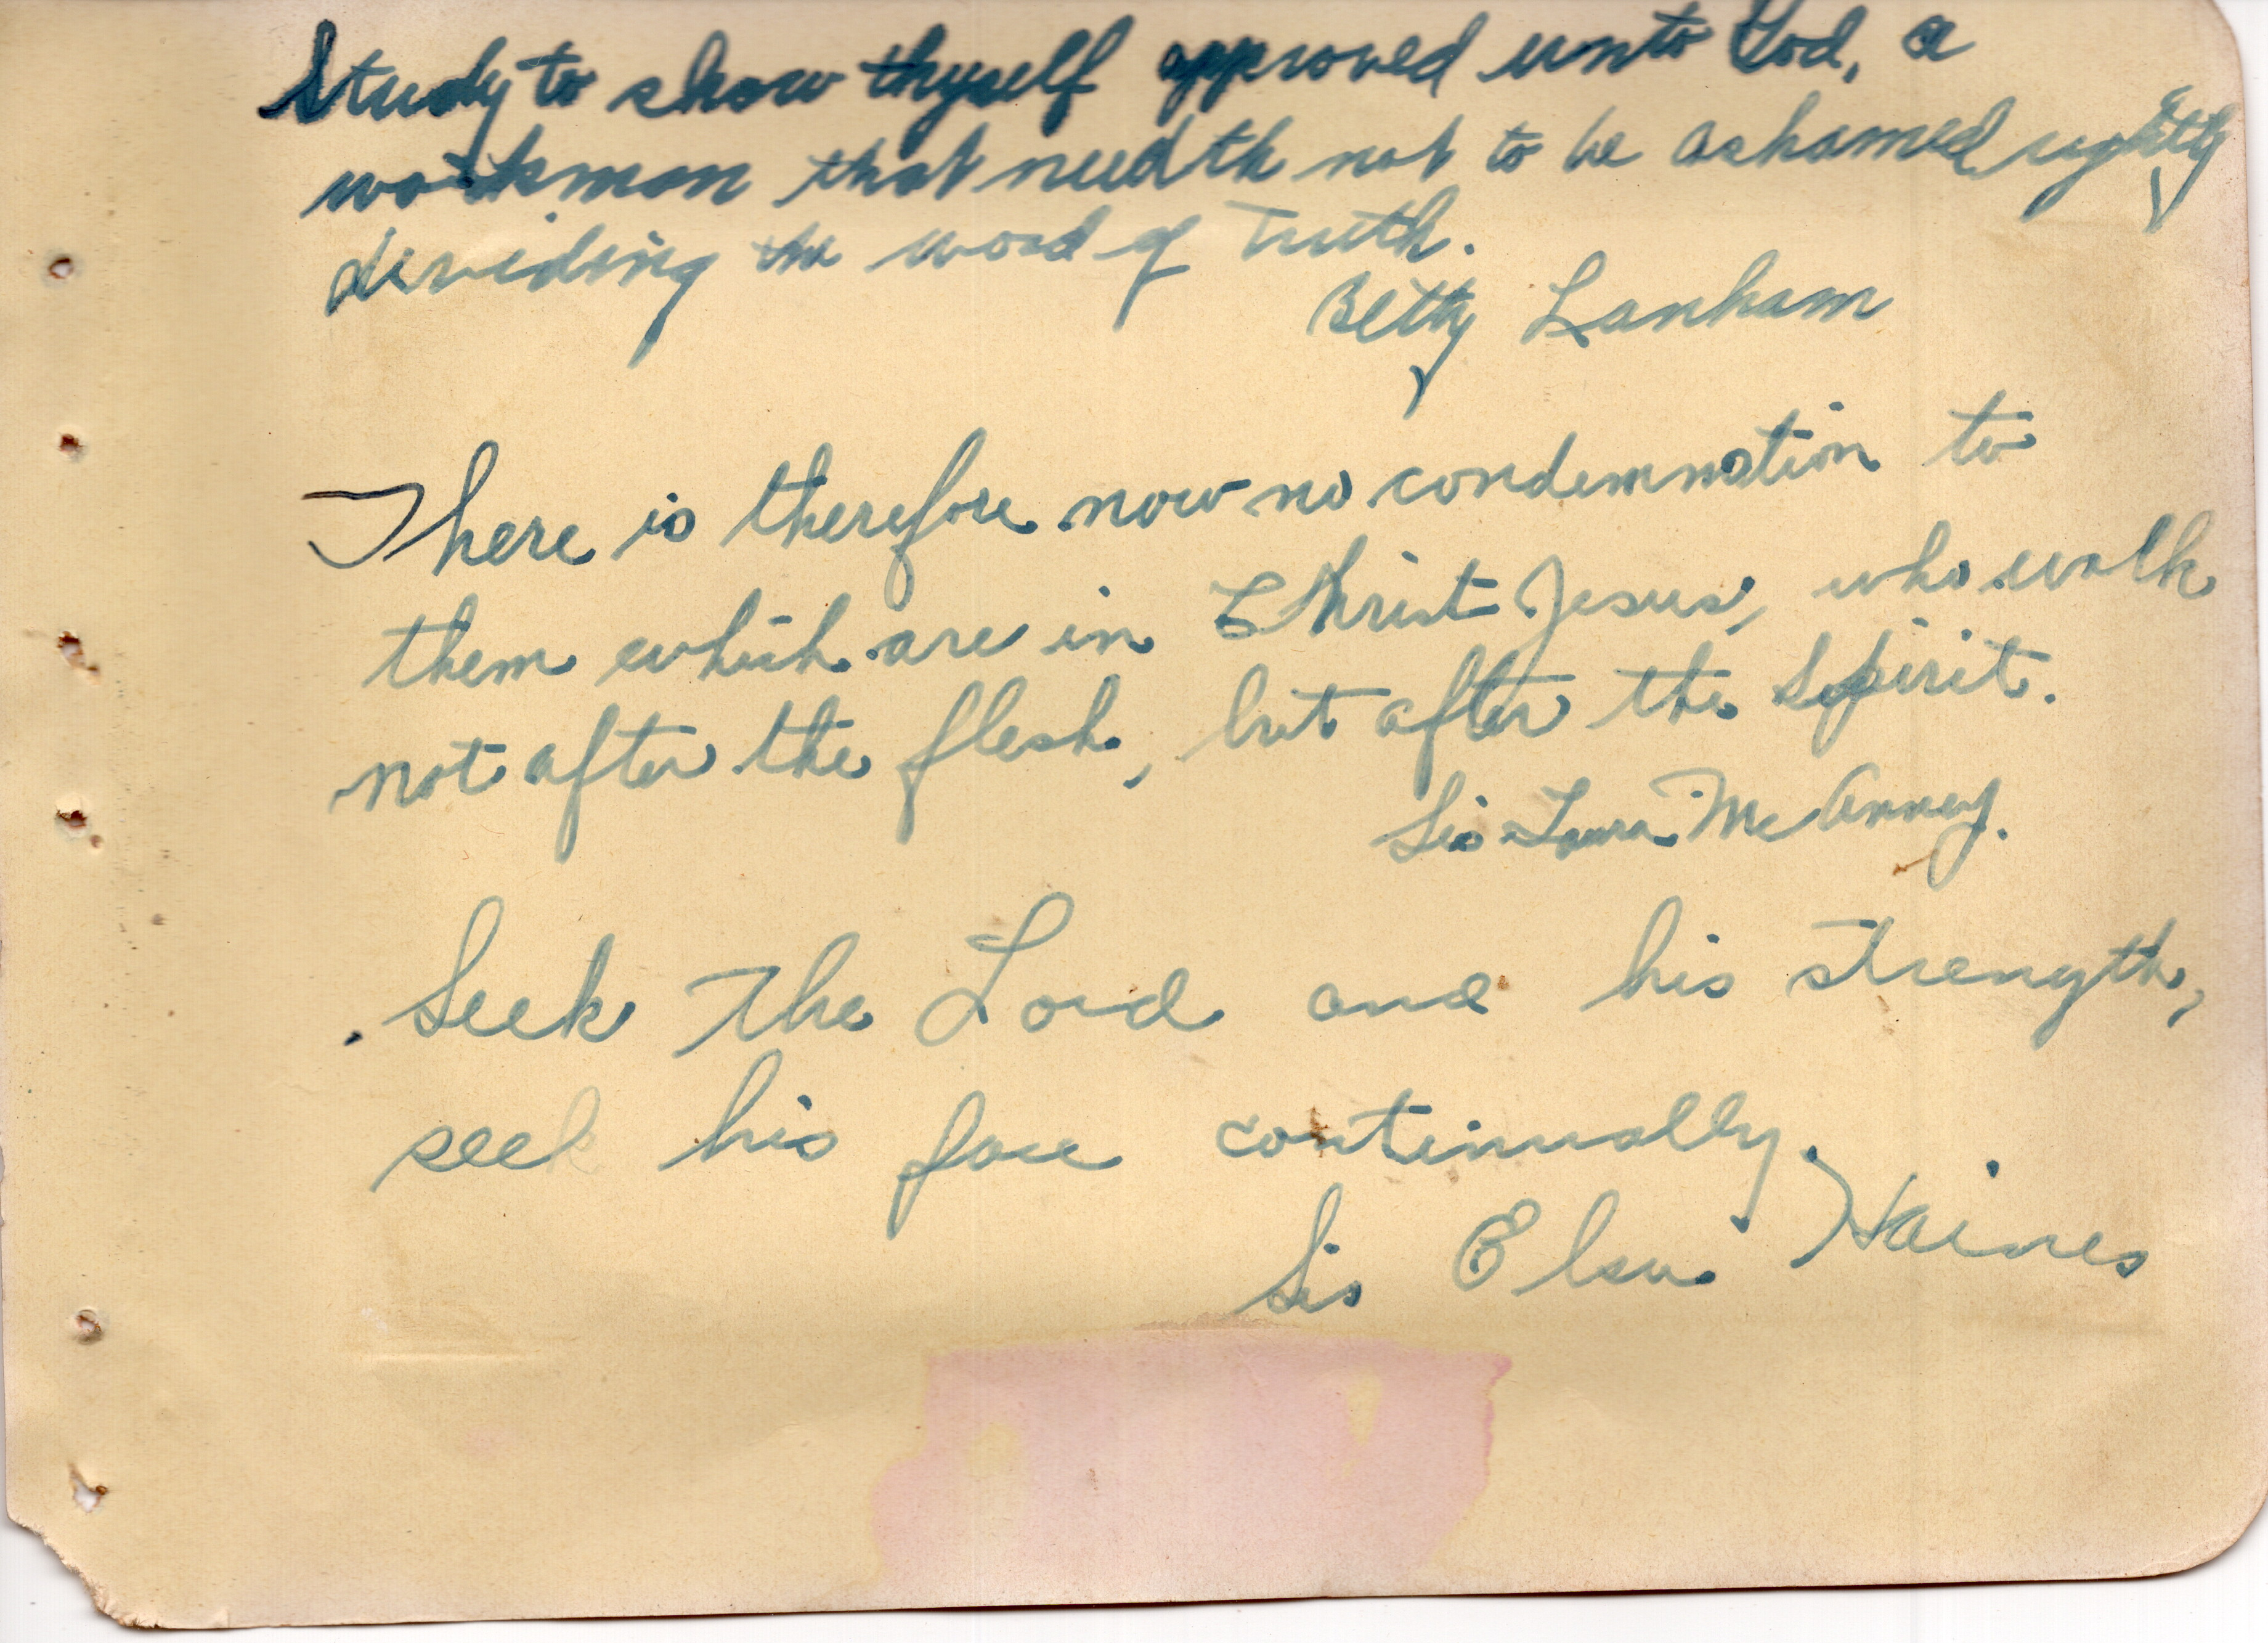 Study to show thyself approved unto God, a
workman that needth not to be ashamed, rightly
dividing the word of Truth.
Betty Lanham
There is therefore now no condemnation to
them which are in Christ Jesus, who walk
not after the flesh, but after the Spirit.
Sis Laura McAnney.
Seek The Lord and his strength,
seek his face continually.
Sis Elsie Haines